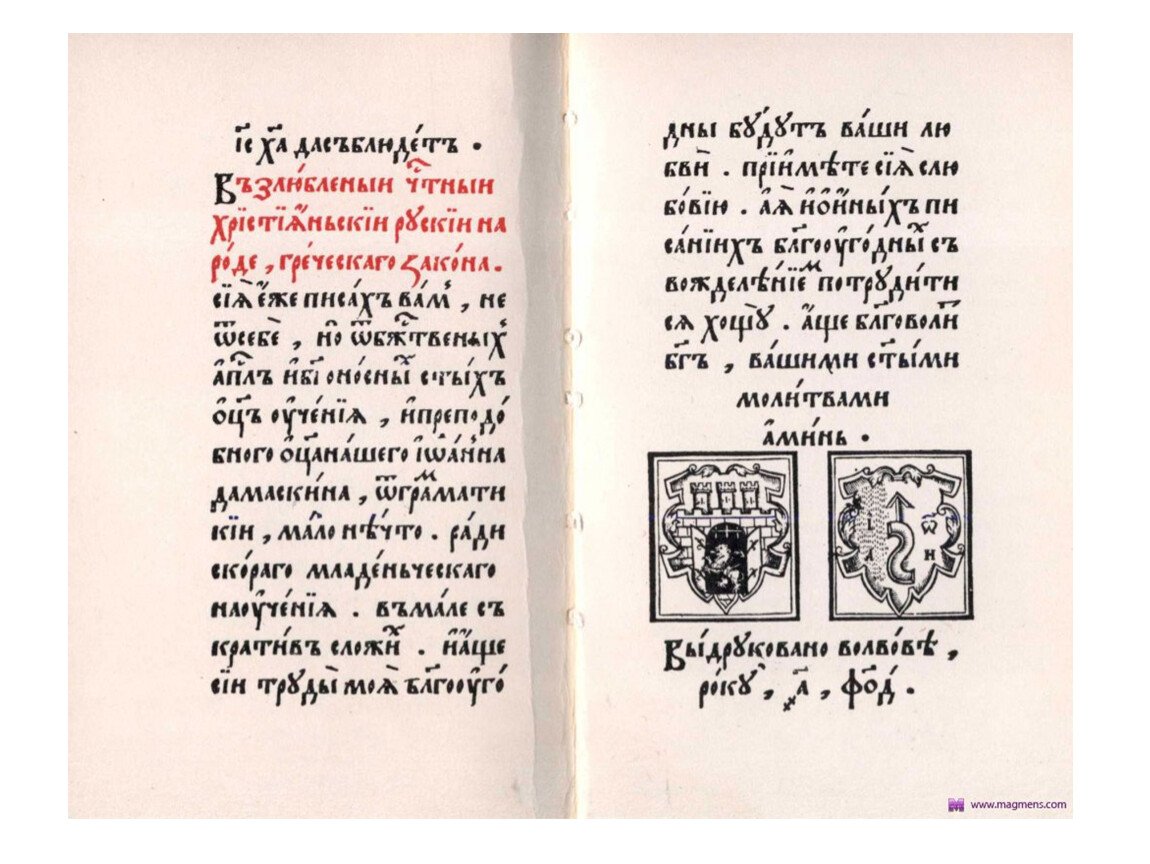 і҃с х҃а дасъблюде́тъ .
Възлю́бленыи ч҇тныи
хрїстїа́ньскїи рускїи на
ро́де , гре́ческаго зако́на .
сїѧ̀ е́же писа́хъ ва́м , не
ѿсебѐ , но ѿбж҇твеныхъ
а҆п҃лъ и҆бг҃оно́сныⷯ ст҃ы́хъ
ѻ҆ц҃ъ оу҆че́нїѧ , и҆преподо́
бного ѻ҆ц҃ана́шего і҆ѡа́нна
дамаски́на , ѿгра́маⷨти
кїи , ма́ло нѣ́что . ра́ди
ско́раго младе́ньческаго
наоуче́нїѧ . въма́ле съ
крати́въ сложи́ⷯ . и҆а́ще
сїи труды̀ моѧ̀ бл҃гооуго́
дны бу́дутъ ва́ши лю
бвѝ . прїими́те сїѧ̀ слю
бо́вїю . а҆́ѧ и҆и҆ны́хъ пи
са́нїихъ бл҃гооуго́дныⷯ съ
вожделѣ́нїеⷨ потруди́ти
сѧ хощу̀ . а҆́ще бл҃говоли́т
бг҃ъ , ва́шими ст҃ы́ми
моли́твами
а҆ми́нь .
І ѡ
А Н
Вы́друковано волво́вѣ ,
ро́кỳ , ҂а҃ , фо҃д .
www.magmens.com